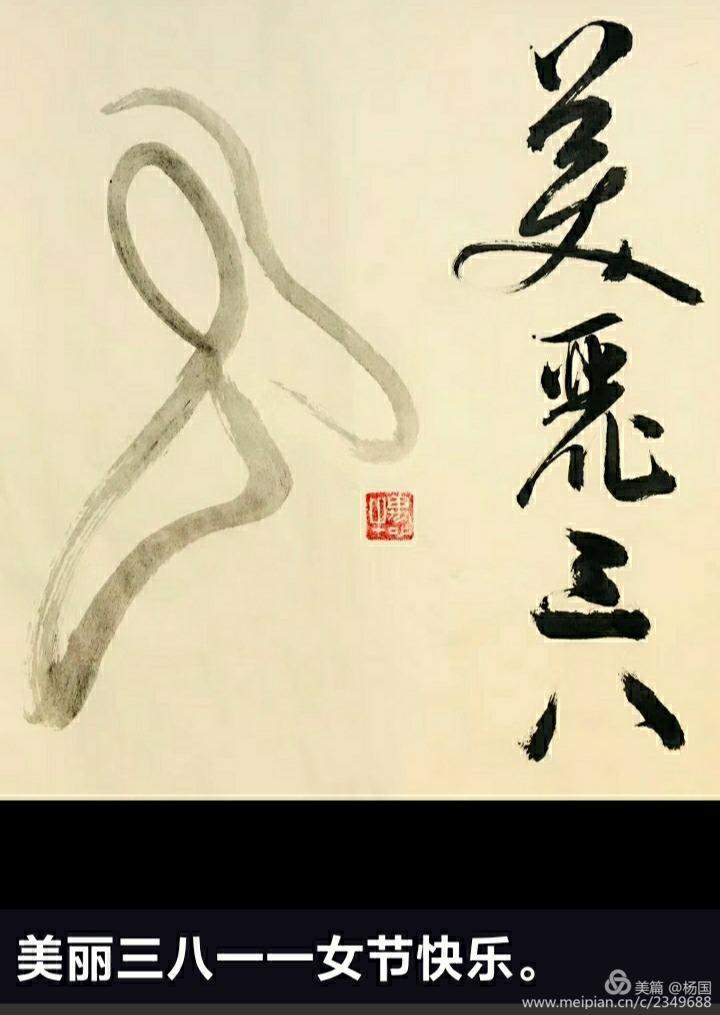 美麗三八
美丽三八一一女节快乐。
美篇 @杨国
www.meipian.cn/c/2349688